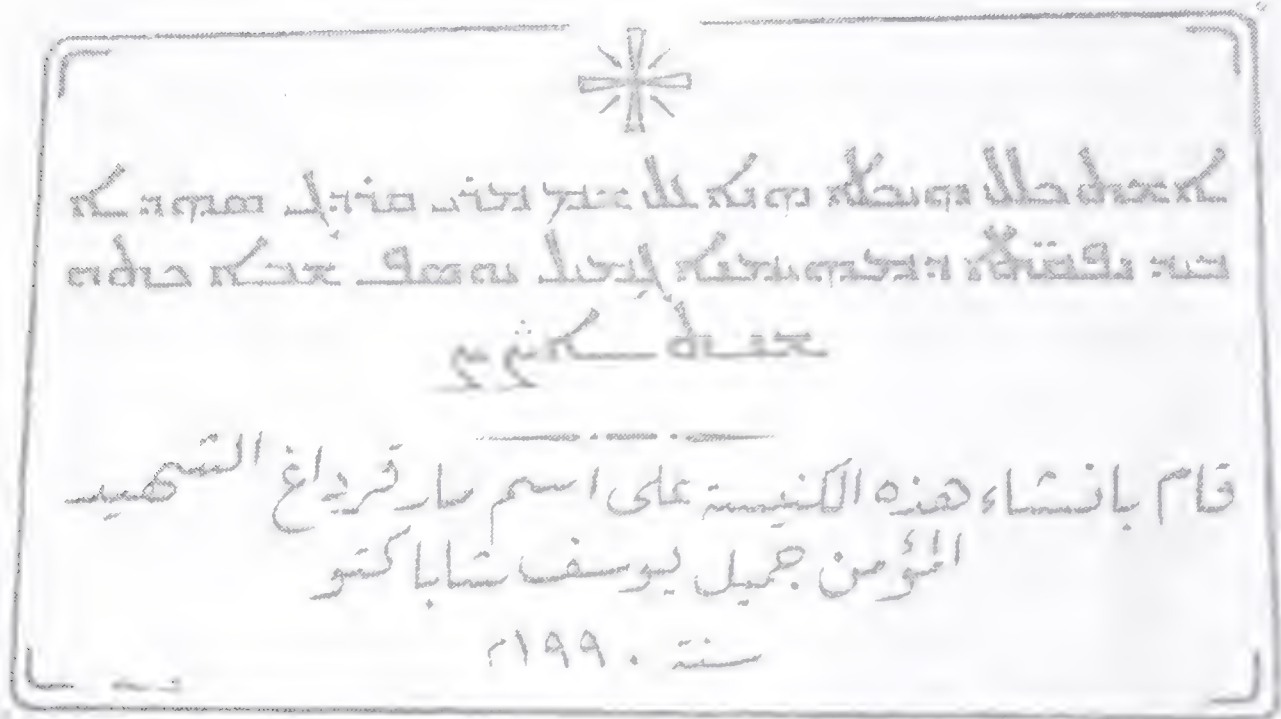 ܐܫܬܟܠܠ ܗܝܟܠܐ ܗܢܐ ܥܠ ܫܡ ܡܪܝ ܩܪܕܓ ܣܗܕܐ
ܒܝܕ ܢܦܩ̈ܬܐ ܕܡܗܝܡܢܐ ܓܡܝܠ ܝܘܣܦ ܫܒܐ
ܫܢܬ
قام بانشاء هذه الكنيسة على اسم مار قرداغ الشهيد
المؤمن جميل يوسف شابا كتو
سنة ١٩٩٠م